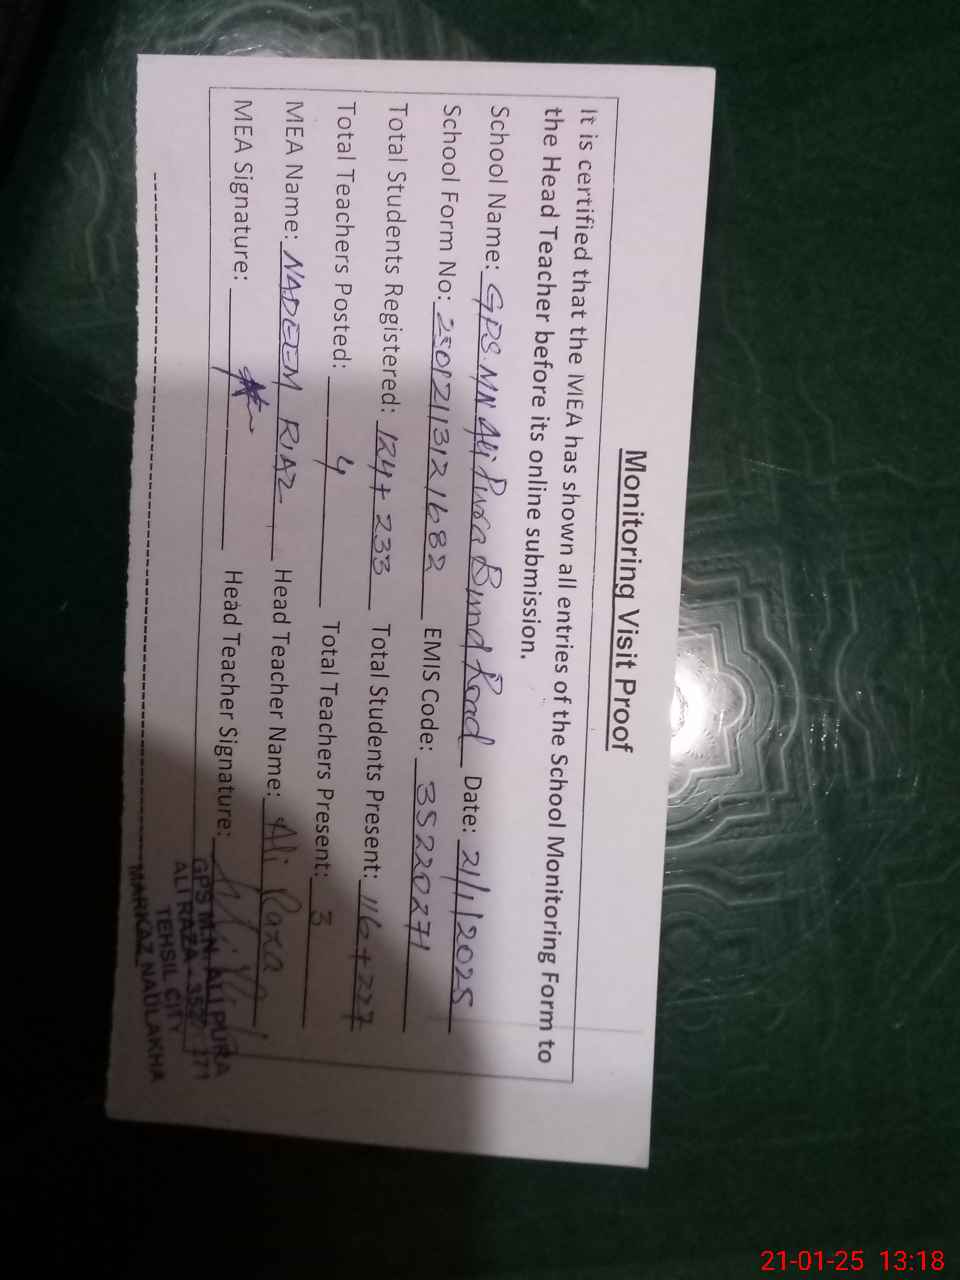 Monitoring Visit Proof
It is certified that the MEA has shown all entries of the School Monitoring Form to
the Head Teacher before its online submission.
School Name: GPS MN Ali Pura Bund Road Date: 21/1/2025
School Form No: EMIS Code: 35220271
Total Students Registered: 124+233 Total Students Present: 116+227
Total Teachers Posted: 4 Total Teachers Present: 3
MEA Name: NADEEM RIAZ Head Teacher Name: Ali Raza
MEA Signature: Head Teacher Signature:
GPS M.N. ALI PURA
ALI RAZA 352 271
TEHSIL CITY
MARKAZ NAULAKHA
21-01-25 13:18